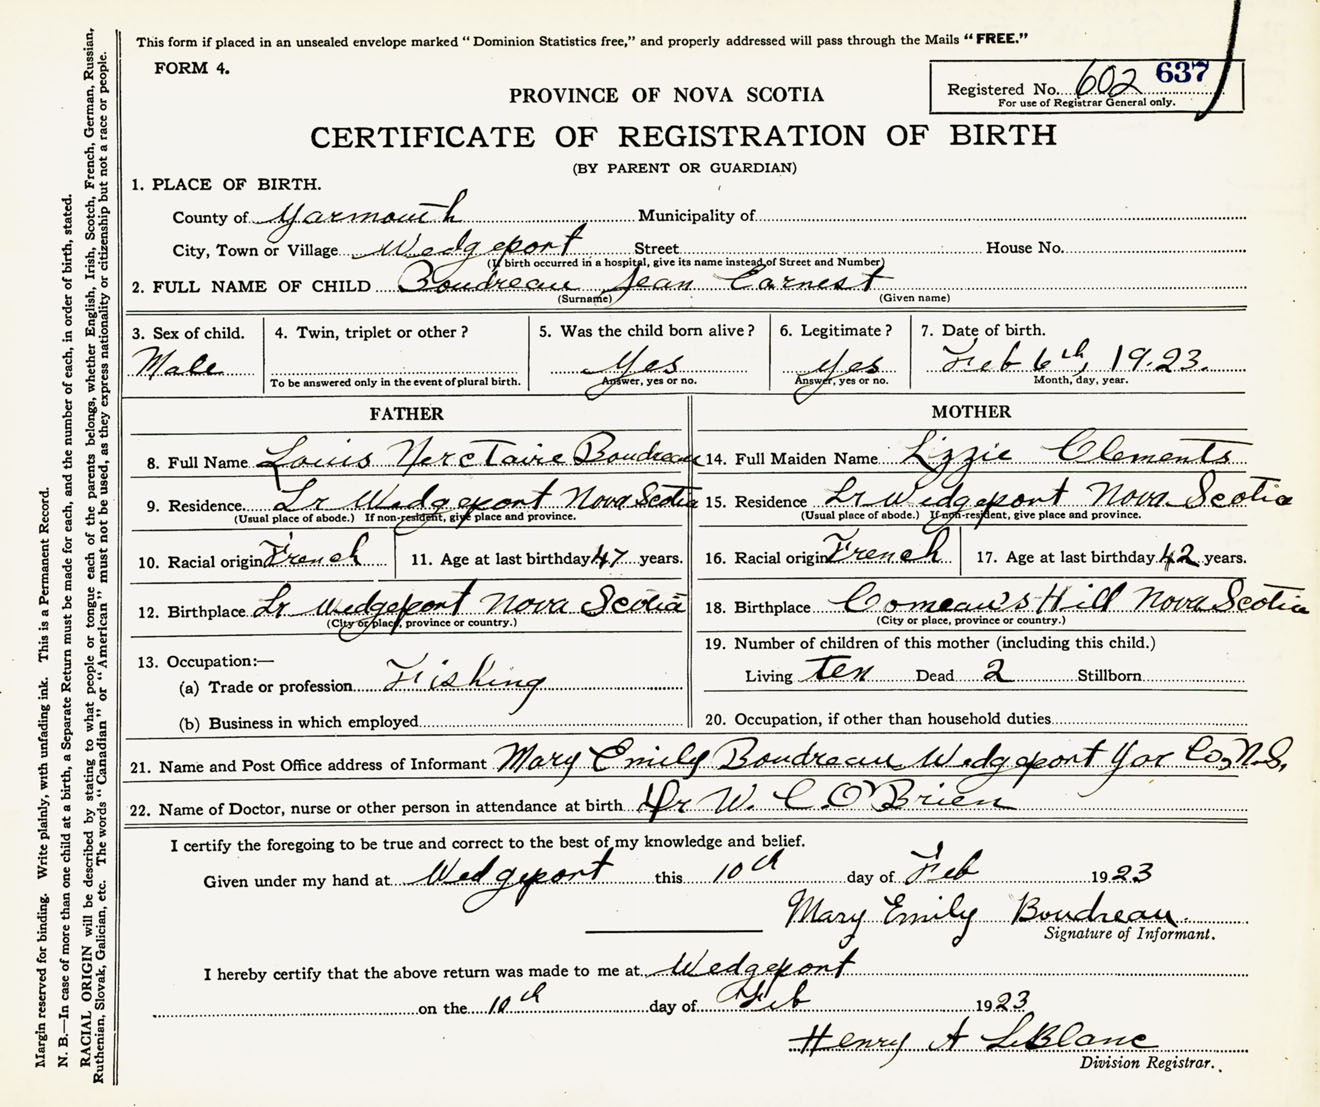 This form if placed in an unsealed envelope marked "Dominion Statistics free," and properly addressed will pass through the Mails "FREE."
FORM 4.
Registered No. 602 637
For use of Registrar General only.
PROVINCE OF NOVA SCOTIA
CERTIFICATE OF REGISTRATION OF BIRTH
(BY PARENT OR GUARDIAN)
1. PLACE OF BIRTH.
County of Yarmouth Municipality of
City, Town or Village Wedgeport Street House No.
(If birth occurred in a hospital, give its name instead of Street and Number)
2. FULL NAME OF CHILD Boudreau Jean Earnest
(Surname) (Given name)
3. Sex of child. 4. Twin, triplet or other? 5. Was the child born alive? 6. Legitimate? 7. Date of birth.
Male Yes Yes Feb 6th, 1923.
To be answered only in the event of plural birth. Answer, yes or no. Answer, yes or no. Month, day, year.
FATHER MOTHER
8. Full Name Louis Nerctaire Boudreau 14. Full Maiden Name Lizzie Clements
9. Residence Lr Wedgeport Nova Scotia 15. Residence Lr Wedgeport Nova Scotia
(Usual place of abode.) If non-resident, give place and province. (Usual place of abode.) If non-resident, give place and province.
10. Racial origin French 11. Age at last birthday 47 years. 16. Racial origin French 17. Age at last birthday 42 years.
12. Birthplace Lr Wedgeport Nova Scotia 18. Birthplace Comeau's Hill Nova Scotia
(City or place, province or country.) (City or place, province or country.)
13. Occupation:— 19. Number of children of this mother (including this child.)
(a) Trade or profession Fishing Living ten Dead 2 Stillborn
(b) Business in which employed 20. Occupation, if other than household duties
21. Name and Post Office address of Informant Mary Emily Boudreau Wedgeport Yar Co, N.S,
22. Name of Doctor, nurse or other person in attendance at birth Dr W. C. O'Brien
I certify the foregoing to be true and correct to the best of my knowledge and belief.
Given under my hand at Wedgeport this 10th day of Feb 1923
Mary Emily Boudreau
Signature of Informant.
I hereby certify that the above return was made to me at Wedgeport
on the 10th day of Feb 1923
Henry A LeBlanc
Division Registrar.
Margin reserved for binding. Write plainly, with unfading ink. This is a Permanent Record.
N. B.—In case of more than one child at a birth, a Separate Return must be made for each, and the number of each, in order of birth, stated.
RACIAL ORIGIN will be described by stating to what people or tongue each of the parents belongs, whether English, Irish, Scotch, French, German, Russian,
Ruthenian, Slovak, Galician, etc. The words "Canadian" or "American" must not be used, as they express nationality or citizenship but not a race or people.